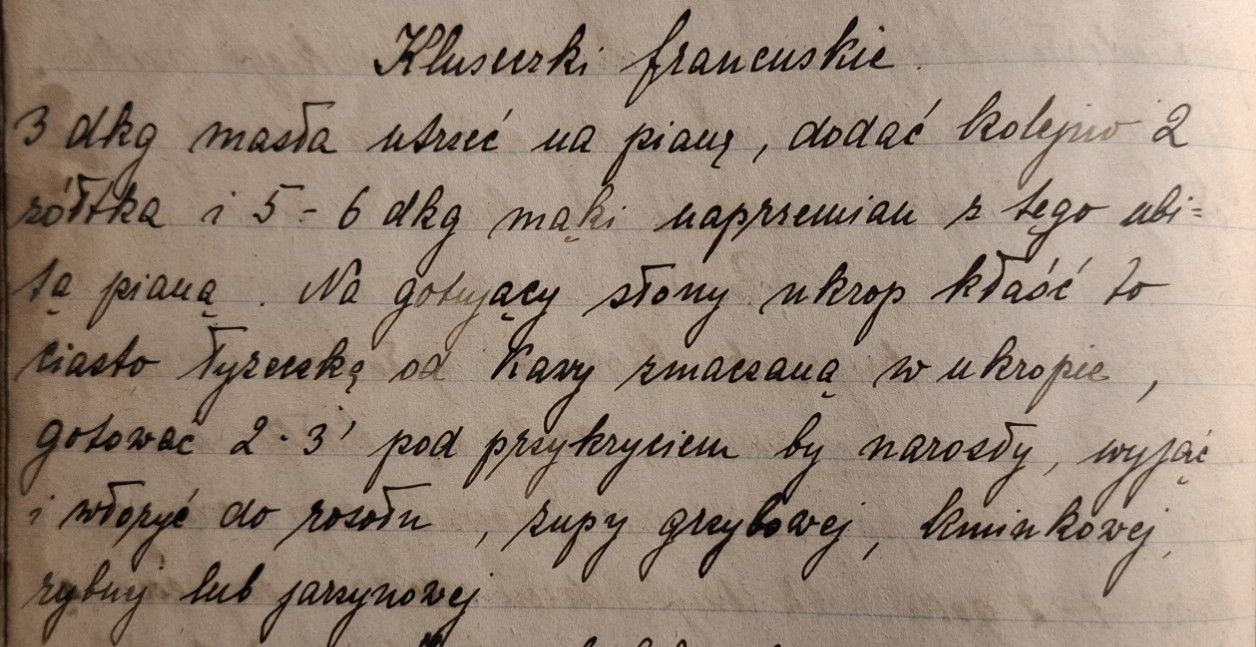 Kluseczki francuskie
3 dkg masła utrzeć na pianę, dodać kolejno 2
żółtka i 5-6 dkg mąki naprzemian z tęgo ubi=
tą pianą. Na gotujący słony ukrop kłaść to
ciasto łyżeczką od kawy zmaczaną w ukropie,
gotować 2-3' pod przykryciem by narosły, wyjąć
i włożyć do rosołu, zupy grzybowej, kminkowej,
rybnej lub jarzynowej